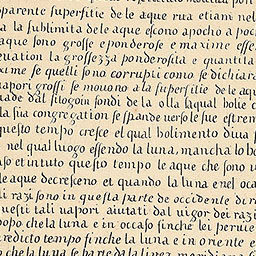 parente superfitie de le aque rua etiani nel
a la sublimita de le aque escono apocho a poc
aque sono grosse eponderose e maxime esse
euation la grossezza ponderosita e quantita
xime se quelli sono corrupti como se dichiara
uapori grossi se mouono a la superfitie de le aqu
uade dal sitogoin fondi de la olla laqual bolie c
la sua congregation se spande uerso le sue estrem
questo tempo cresce el qual bolimento dura p
nel qual luogo essendo la luna, mancha lo bo
so et intuto questo tempo le aque che sono i
le aque decresceno et quando la luna e nel oca
li razi sono in questa parte de occidente di r
questi tali uapori aiutati dal uigor dei razi
popo che la luna e in occaso finche lei peruie
redicto tempo finche la luna e in oriente e
che la luna se parte da la linea meridiana